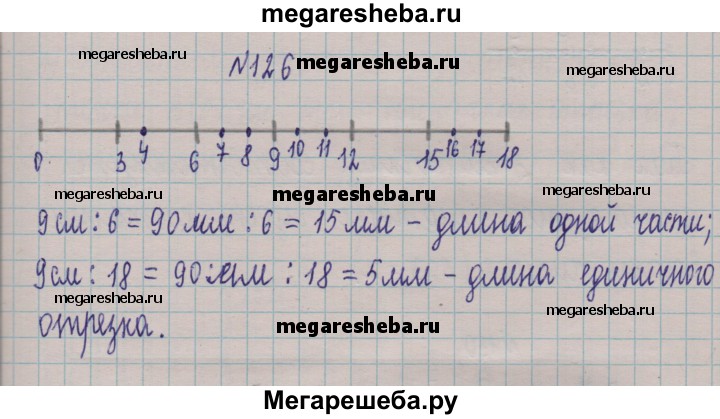 megaresheba.ru
megaresheba.ru
№126
megaresheba.ru
megaresheba.ru
0 3 4 6 7 8 9 10 11 12 15 16 17 18
megaresheba.ru
megaresheba.ru
megaresheba.ru
9 см : 6 = 90 мм : 6 = 15 мм - длина одной части;
9 см : 18 = 90 мм : 18 = 5 мм - длина единичного
megaresheba.ru
megaresheba.ru
отрезка.
megaresheba.ru
Мегарешеба.ру